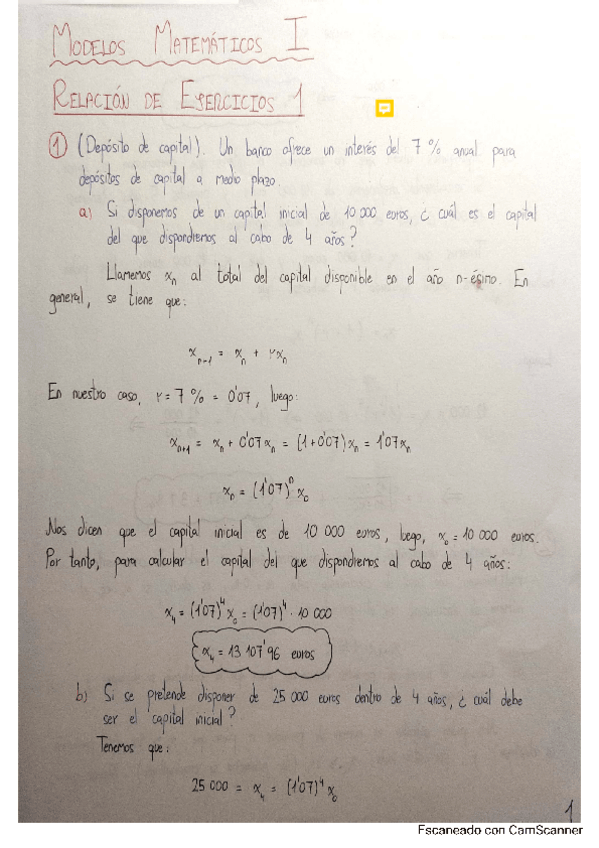 MODELOS MATEMÁTICOS I
RELACIÓN DE EJERCICIOS 1
1 (Depósito de capital). Un banco ofrece un interés del 7 % anual para
depósitos de capital a medio plazo.
a) Si disponemos de un capital inicial de 10 000 euros, ¿ cuál es el capital
del que dispondremos al cabo de 4 años?
Llamemos xₙ al total del capital disponible en el año n-ésimo. En
general, se tiene que:
xₙ₊₁ = xₙ + rxₙ
En nuestro caso, r = 7 % = 0'07, luego:
xₙ₊₁ = xₙ + 0'07xₙ = (1+0'07)xₙ = 1'07xₙ
xₙ = (1'07)ⁿ x₀
Nos dicen que el capital inicial es de 10 000 euros, luego, x₀ = 10 000 euros.
Por tanto, para calcular el capital del que dispondremos al cabo de 4 años:
x₄ = (1'07)⁴ x₀ = (1'07)⁴ · 10 000
x₄ = 13 107'96 euros
b) Si se pretende disponer de 25 000 euros dentro de 4 años, ¿ cuál debe
ser el capital inicial?
Tenemos que:
25 000 = x₄ = (1'07)⁴ x₀
1
Escaneado con CamScanner